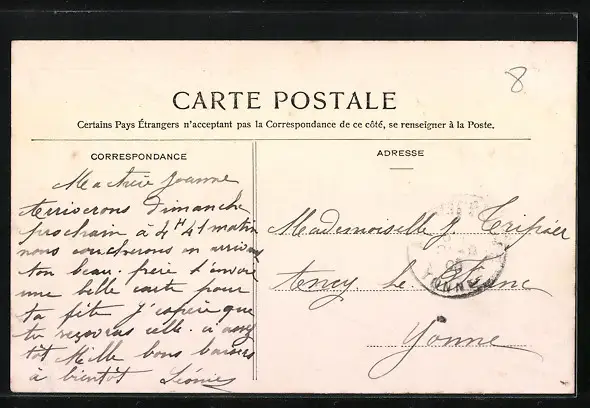 8
CARTE POSTALE
Certains Pays Étrangers n'acceptent pas la Correspondance de ce côté, se renseigner à la Poste.
CORRESPONDANCE
ADRESSE
Ma Jeanne
dimanche
prochain à 4H 41 matin
nous coucherons en
ton beau-frère t'envoie
une belle carte pour
ta fête j'espère que
tu recevras celle-ci assez
tôt Mille bons baisers
à bientôt Léonie
Mademoiselle J. Tripier
Ancy le
Yonne
YONNE